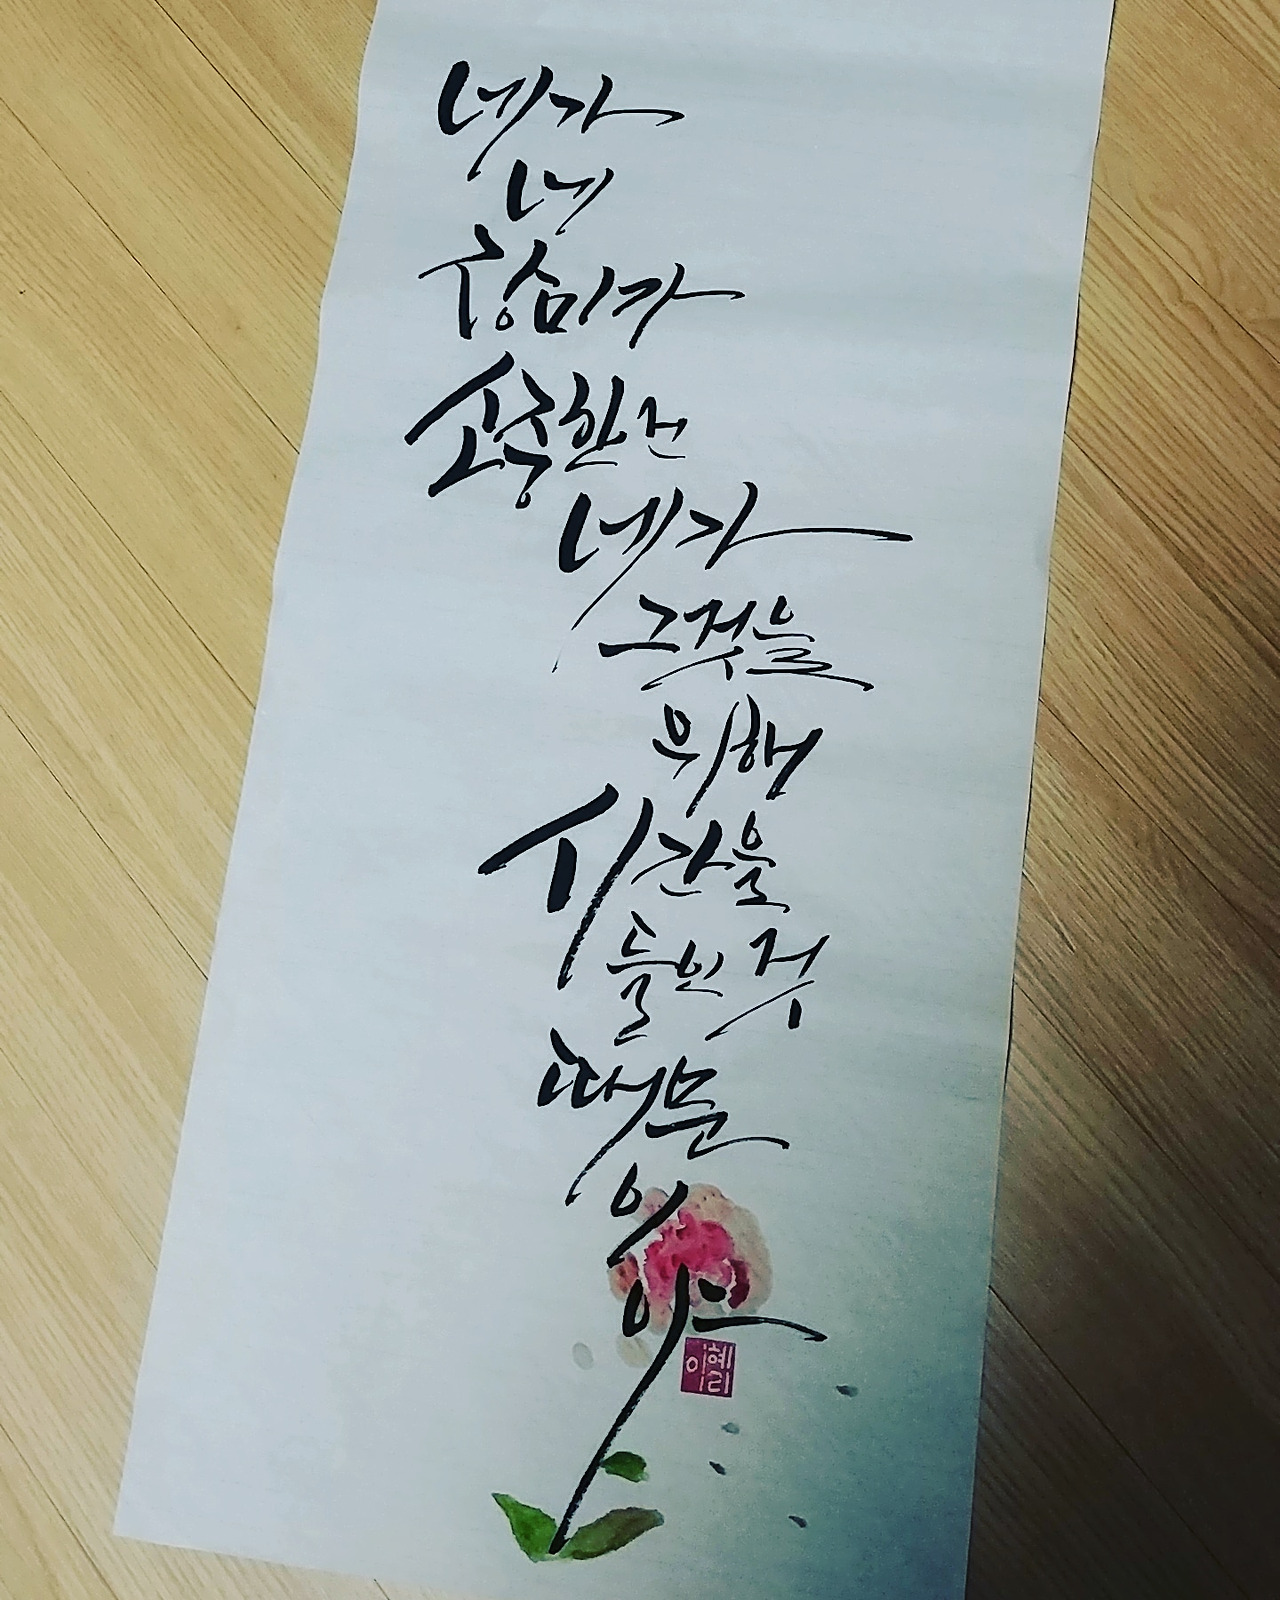 네가
네
장미가
소중한건
네가
그것을
위해
시간을
들인 것
때문
이
야
이혜리